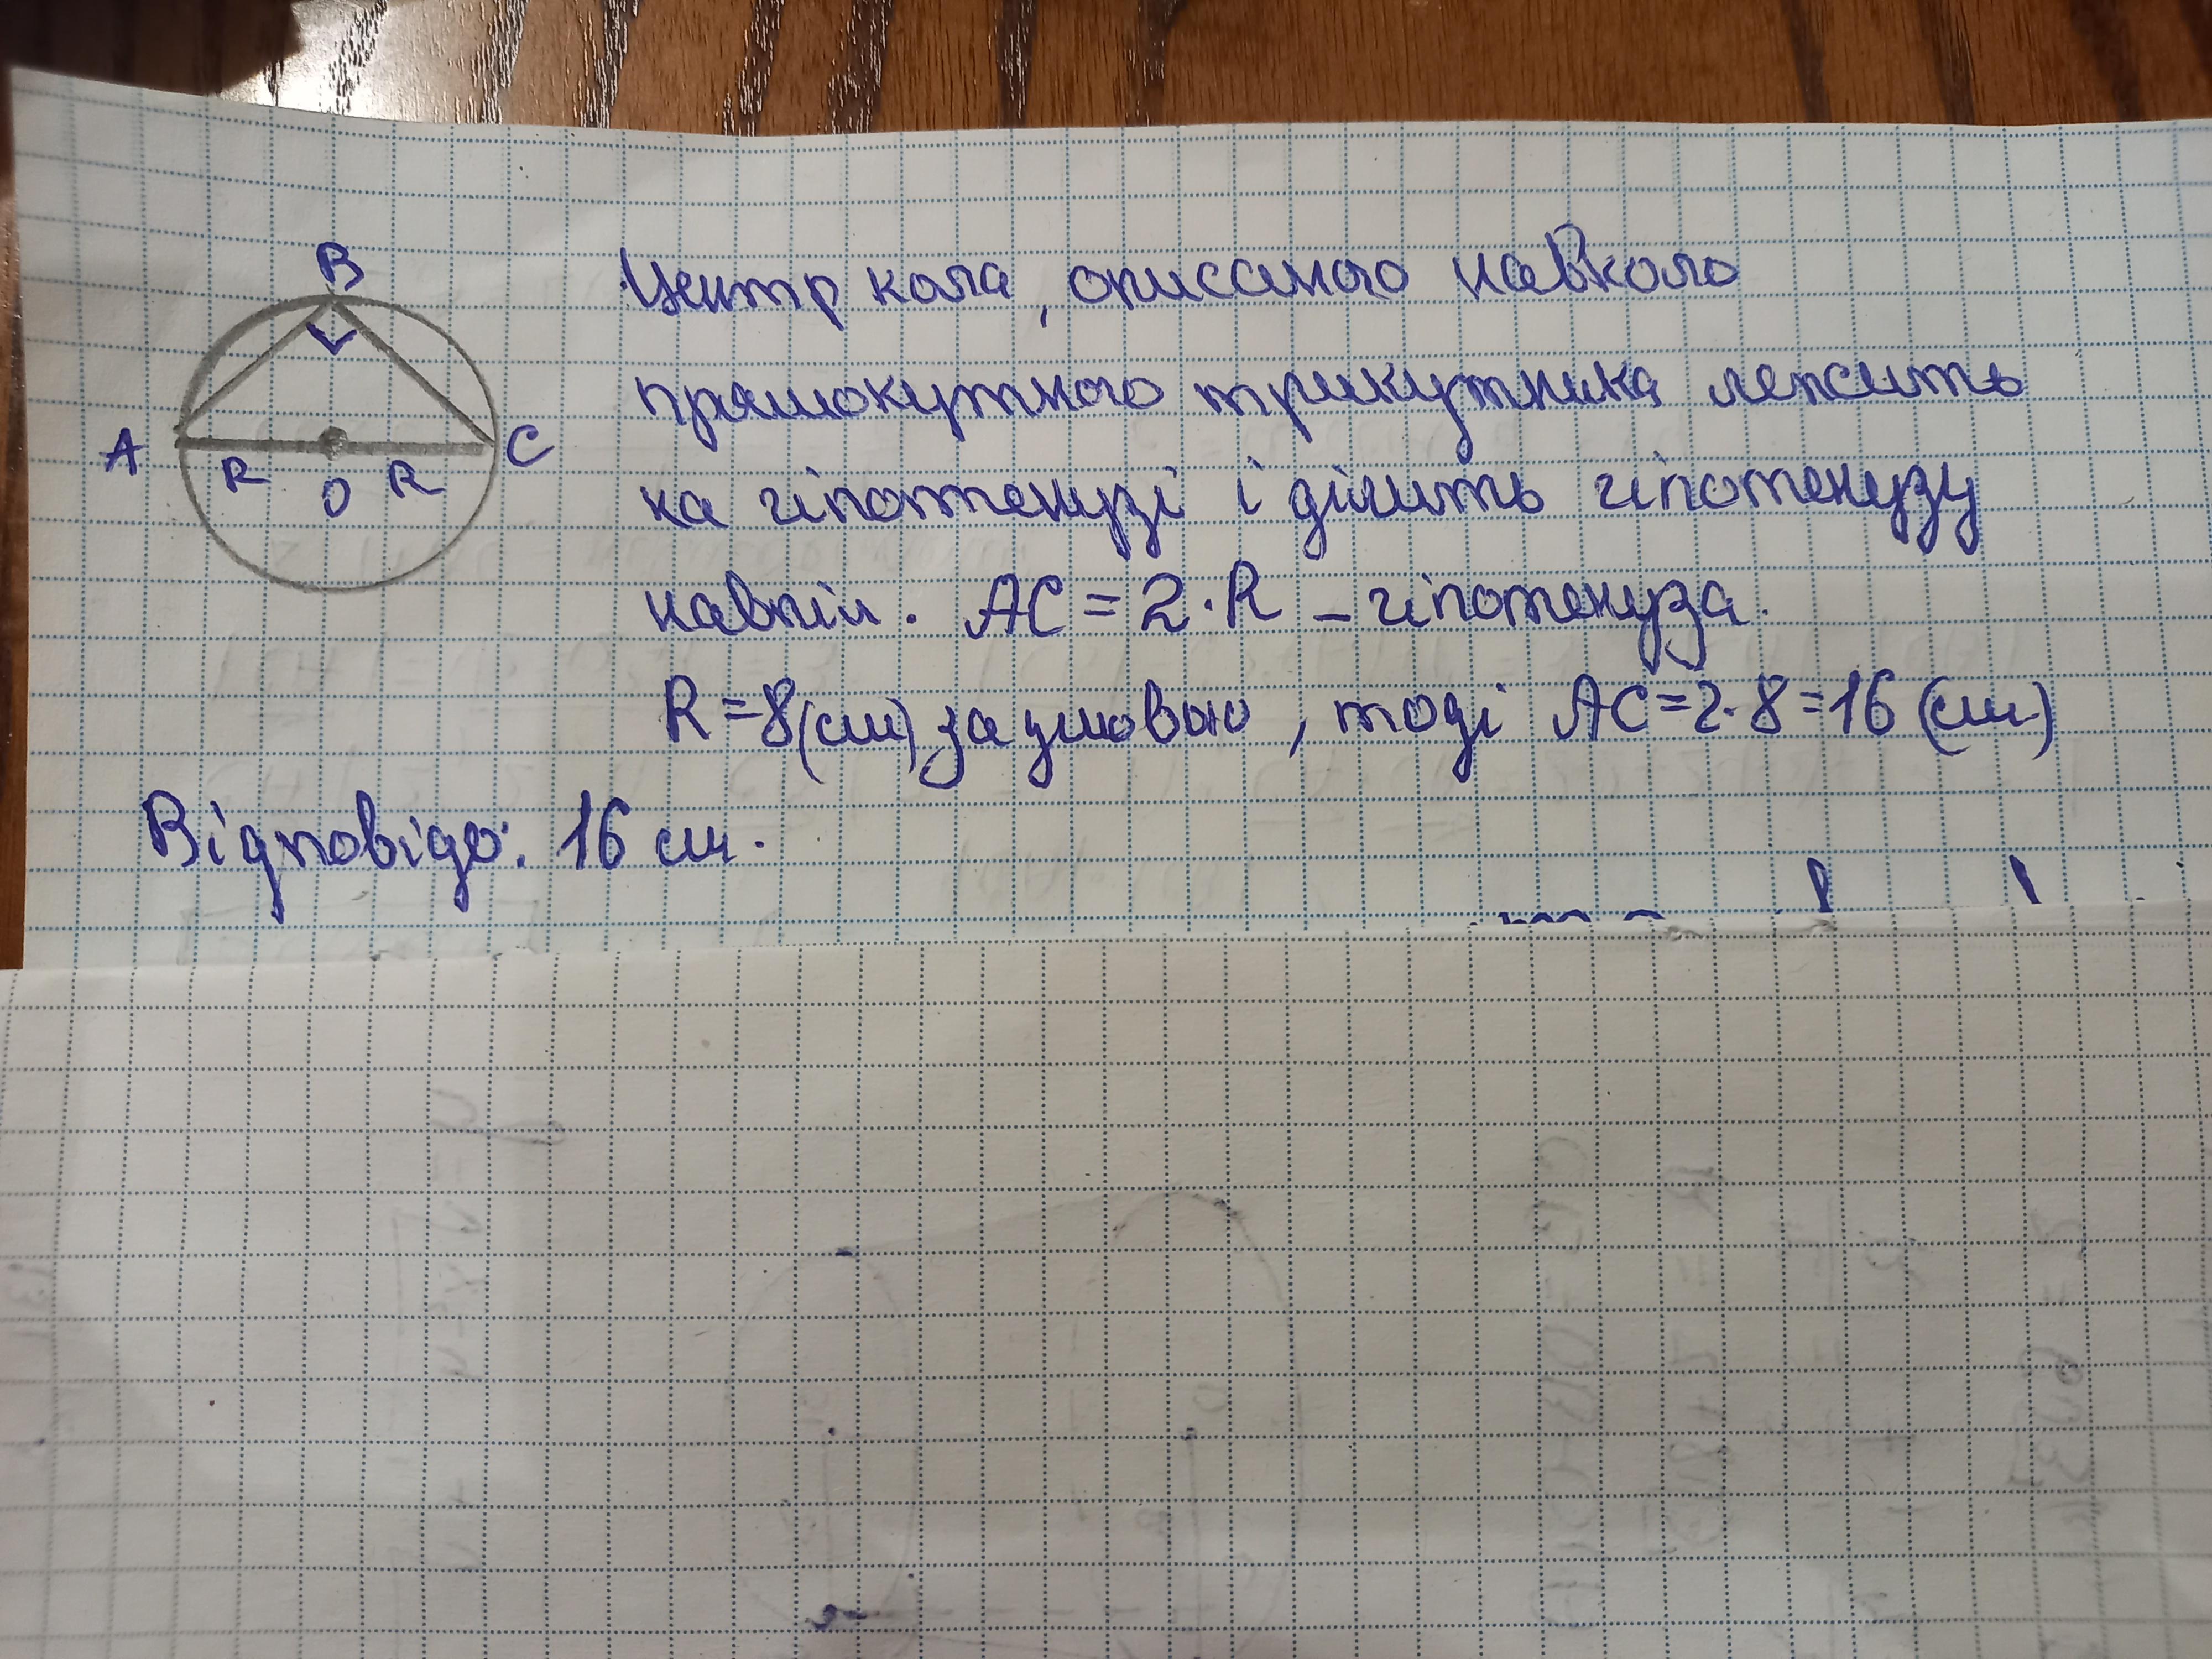 B
Центр кола, описаного навколо
прямокутного трикутника лежить
A R O R C
на гіпотенузі і ділить гіпотенузу
навпіл. AC = 2·R – гіпотенуза.
R = 8(см) за умовою, тоді AC = 2·8 = 16 (см)
Відповідь: 16 см.